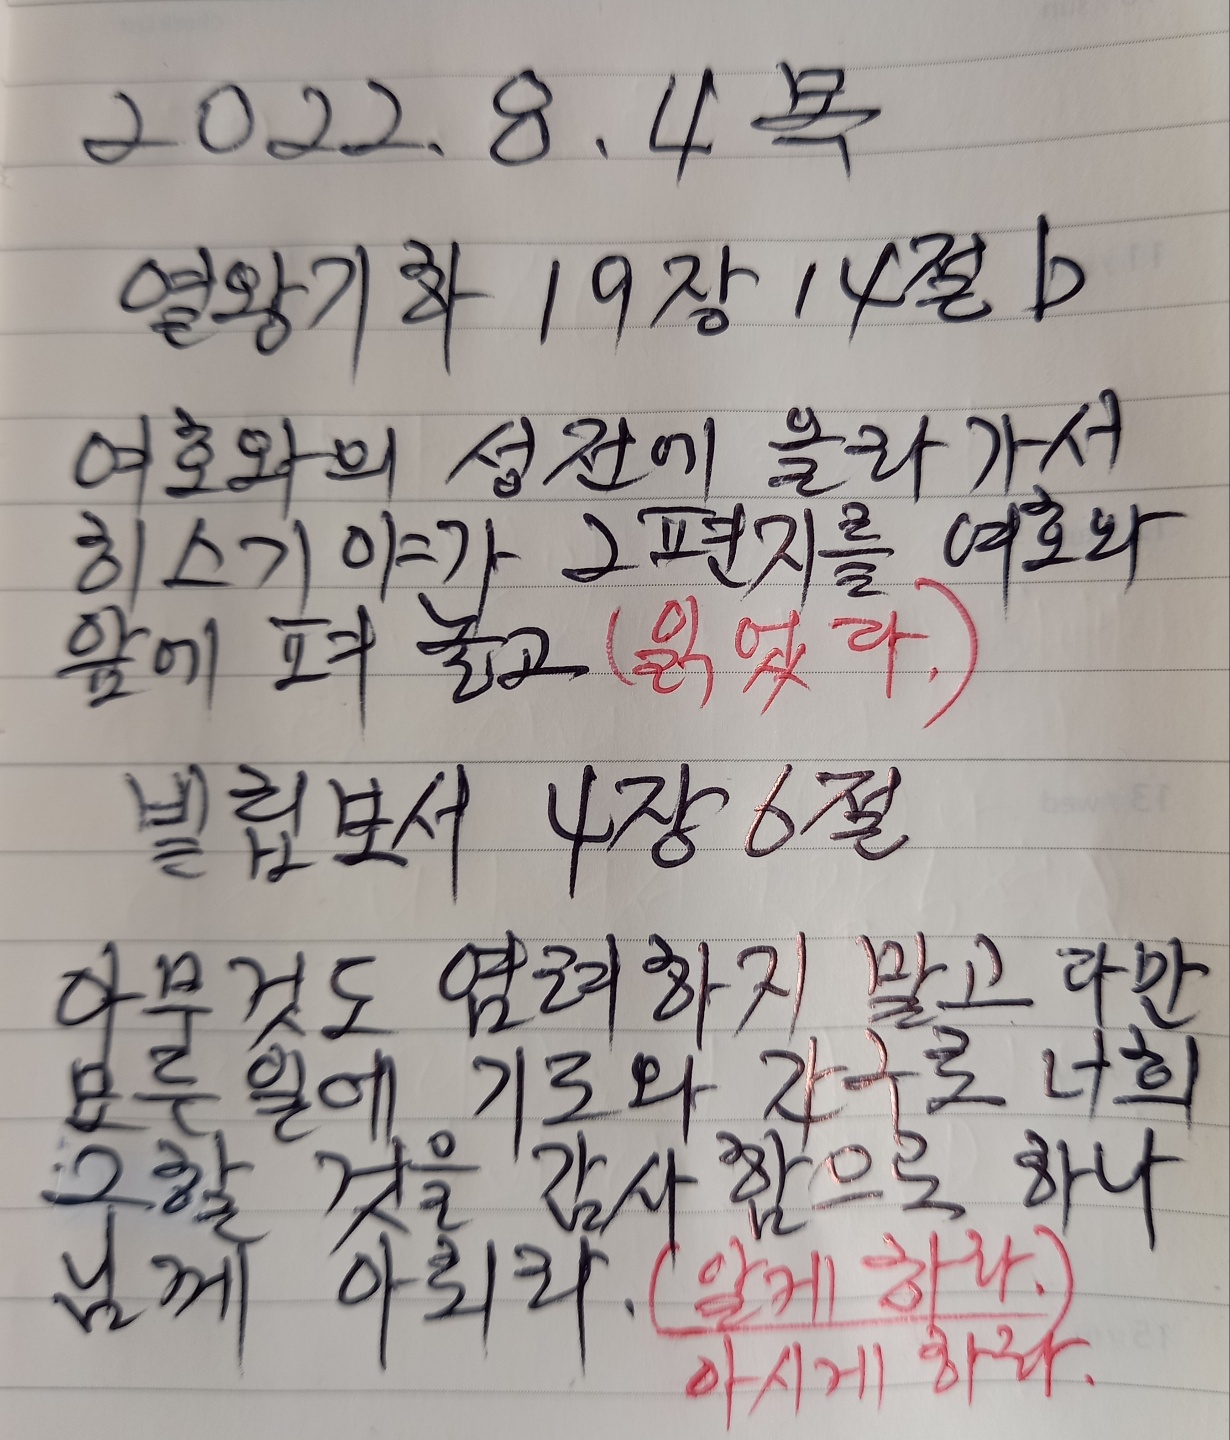 2022. 8. 4 목
열왕기하 19장 14절 b
여호와의 성전에 올라가서
히스기야가 그 편지를 여호와
앞에 펴 놓고 (읽었다.)
빌립보서 4장 6절
아무것도 염려하지 말고 다만
모든 일에 기도와 간구로 너희
구할 것을 감사함으로 하나
님께 아뢰라. (알게 하라.)
아시게 하라.